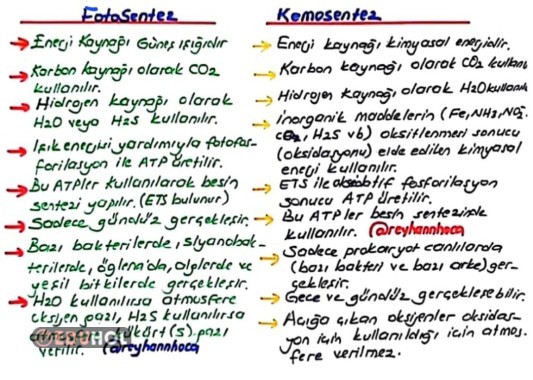 FotoSentez
→ Enerji Kaynağı Güneş ışığıdır
→ Karbon kaynağı olarak CO2
kullanılır.
→ Hidrojen kaynağı olarak
H2O veya H2S kullanılır.
→ Işık enerjisi yardımıyla fotofos-
forilasyon ile ATP üretilir.
→ Bu ATPler kullanılarak besin
sentezi yapılır. (ETS bulunur)
→ Sadece gündüz gerçekleşir.
→ Bazı bakterilerde, siyanobak-
terilerde, öglena'da, alglerde ve
yeşil bitkilerde gerçekleşir.
→ H2O kullanılırsa atmosfere
oksijen gazı, H2S kullanılırsa
kükürt (s) gazı
verilir. @reyhannhoca
@EDUHOL
Kemosentez
→ Enerji kaynağı kimyasal enerjidir.
→ Karbon kaynağı olarak CO2 kullanı
→ Hidrojen kaynağı olarak H2O kullanılı
→ inorganik maddelerin (Fe, NH3, NO2
CO2, H2S vb) oksitlenmesi sonucu
(oksidasyonu) elde edilen kimyasal
enerji kullanılır.
→ ETS ile oksidatif fosforilasyon
sonucu ATP üretilir.
→ Bu ATPler besin sentezinde
kullanılır. @reyhannhoca
→ Sadece prokaryot canlılarda
(bazı bakteri ve bazı arke) ger-
çekleşir.
→ Gece ve gündüz gerçekleşebilir.
→ Açığa çıkan oksijenler oksidas-
yon için kullanıldığı için atmos-
fere verilmez.